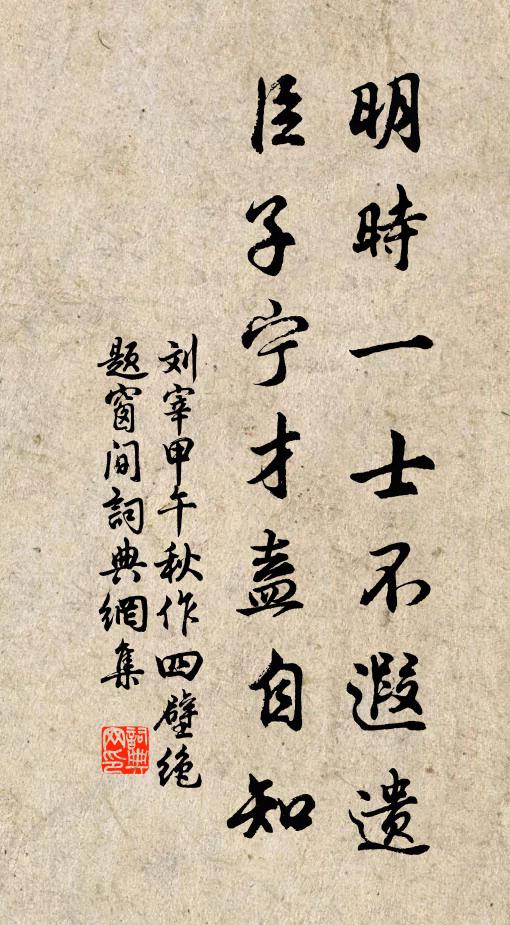 明時一士不遐遗
臣子宁才盍自知
刘宰甲午秋作四壁绝
题窗间詞典網集
詞典网印